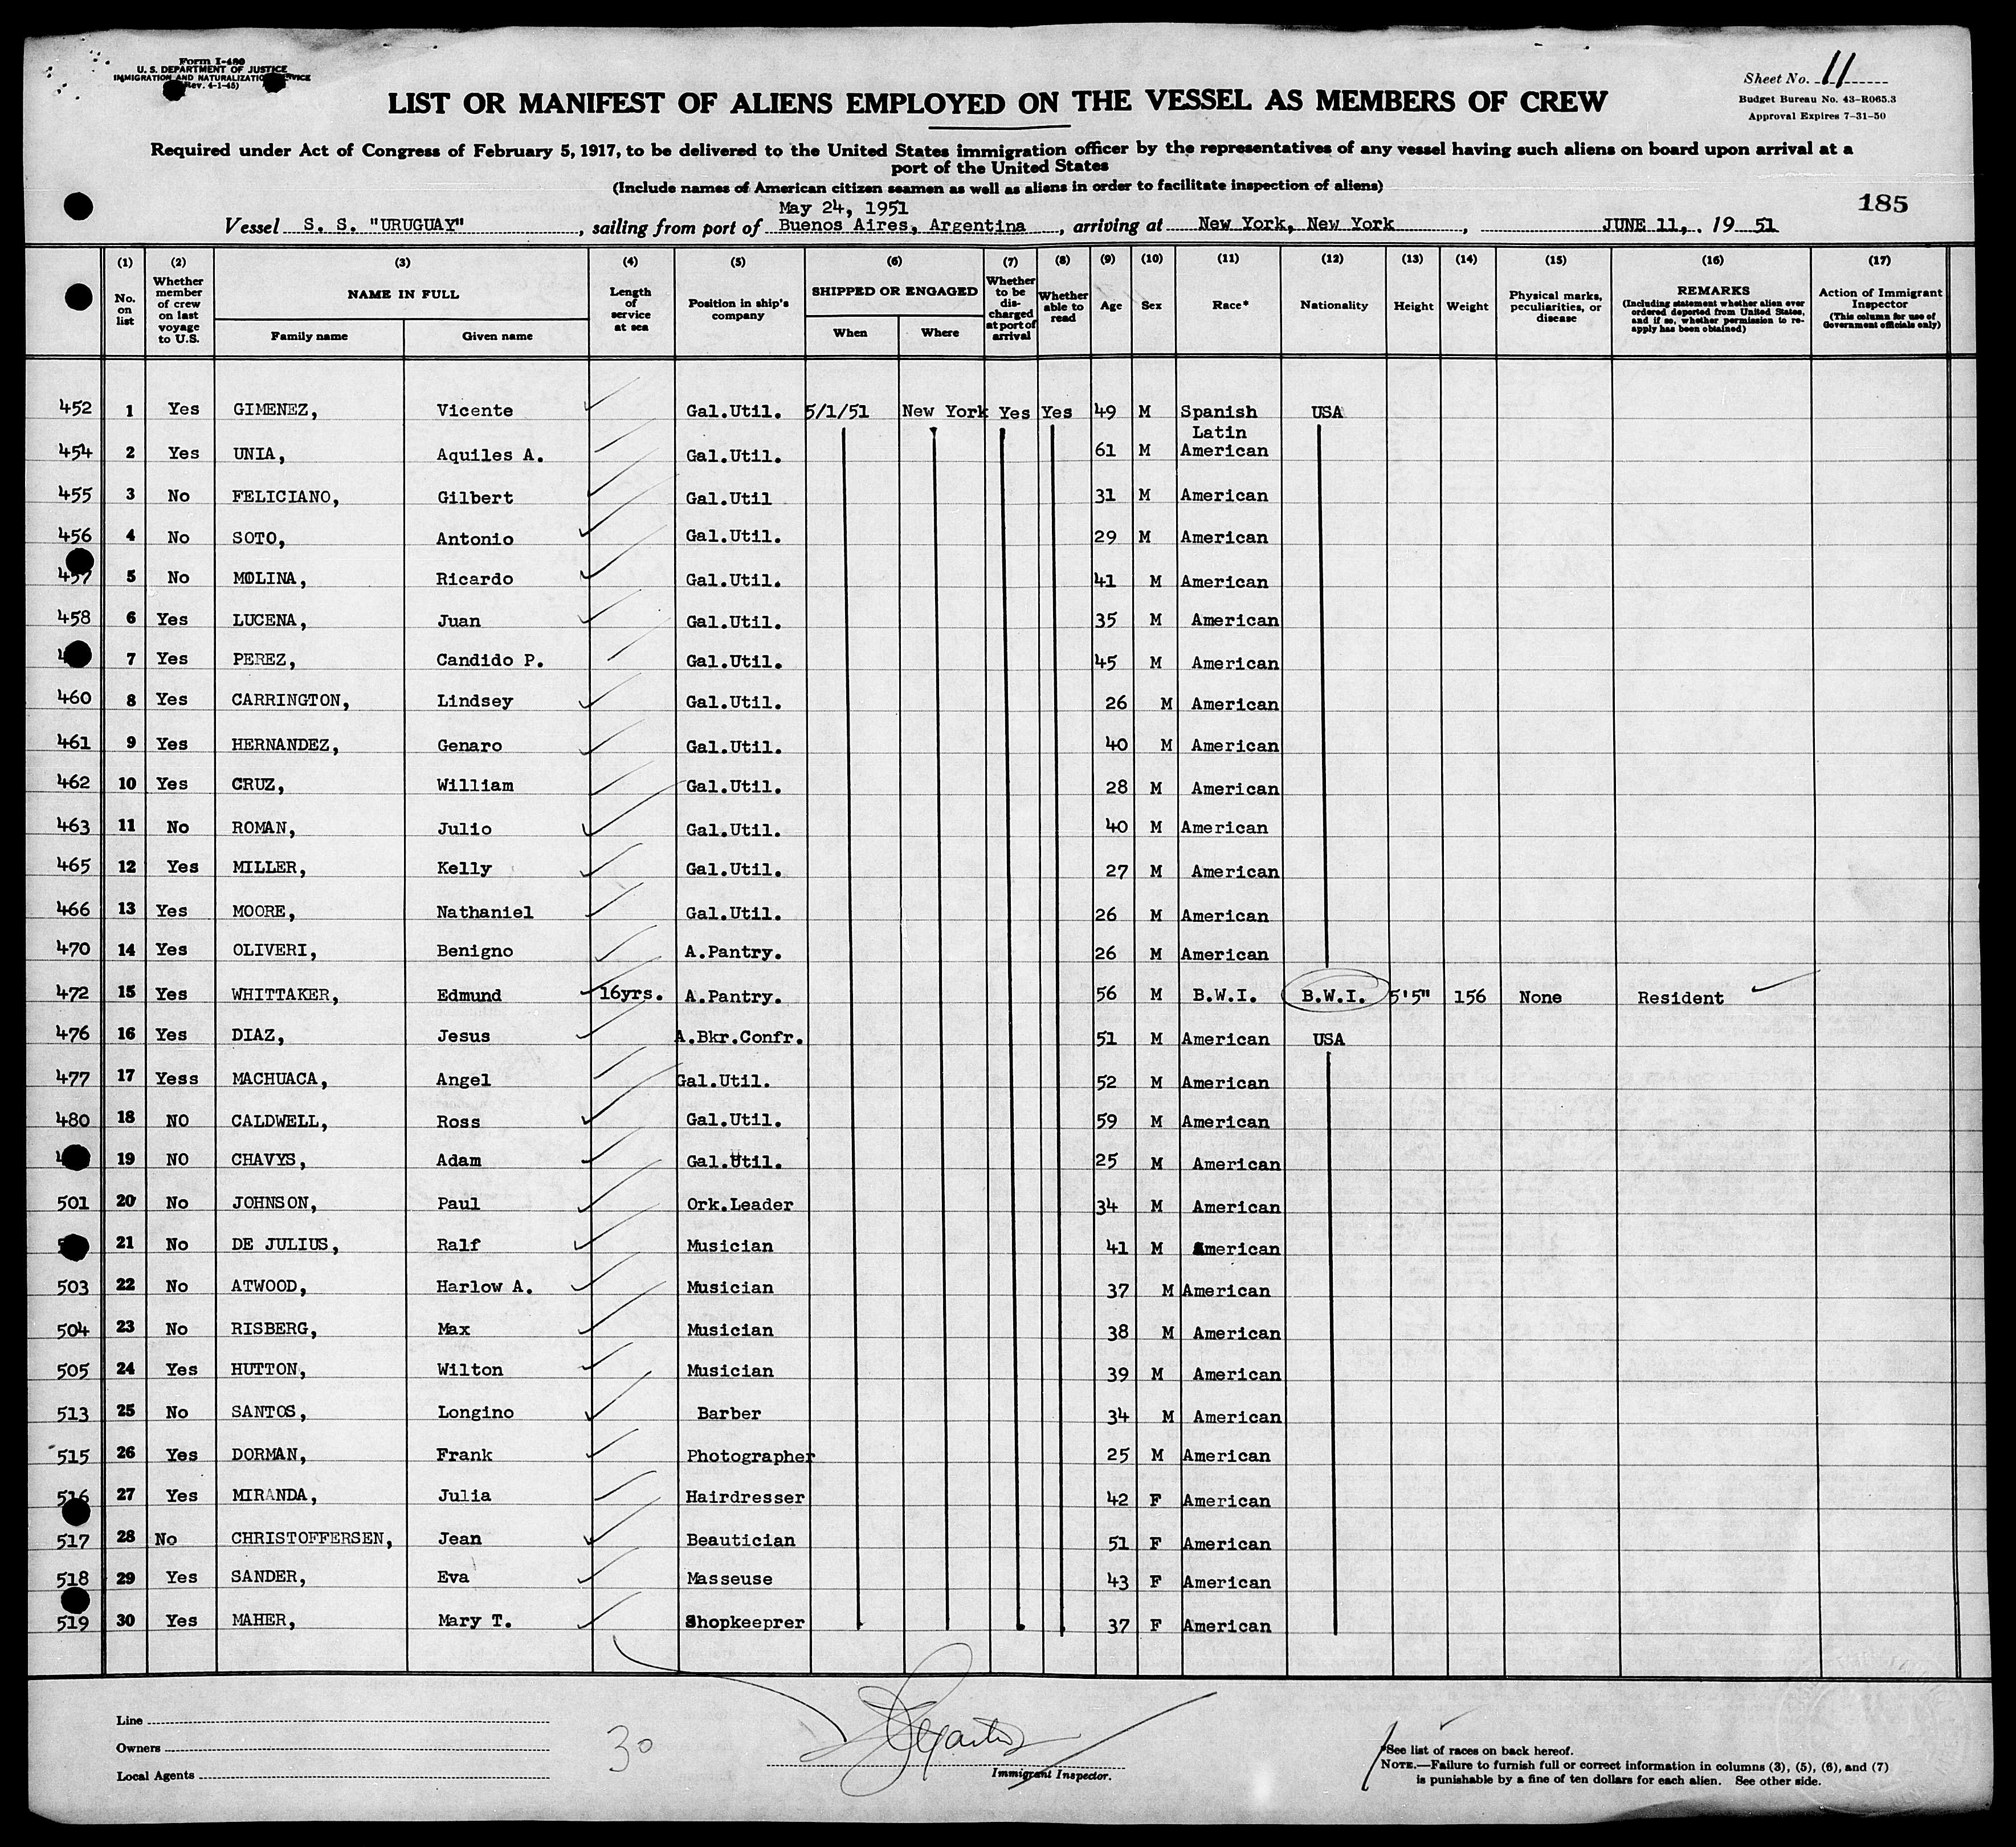 Form I-480
U. S. DEPARTMENT OF JUSTICE
IMMIGRATION AND NATURALIZATION SERVICE
(Rev. 4-1-45)
Sheet No. 11
Budget Bureau No. 43-R065.3
Approval Expires 7-31-50
LIST OR MANIFEST OF ALIENS EMPLOYED ON THE VESSEL AS MEMBERS OF CREW
Required under Act of Congress of February 5, 1917, to be delivered to the United States immigration officer by the representatives of any vessel having such aliens on board upon arrival at a
port of the United States
(Include names of American citizen seamen as well as aliens in order to facilitate inspection of aliens)
185
May 24, 1951
Vessel S. S. "URUGUAY", sailing from port of Buenos Aires, Argentina, arriving at New York, New York, JUNE 11,. 19 51
(1) (2) (3) (4) (5) (6) (7) (8) (9) (10) (11) (12) (13) (14) (15) (16) (17)
No. on list
Whether member of crew on last voyage to U.S.
NAME IN FULL
Family name
Given name
Length of service at sea
Position in ship's company
SHIPPED OR ENGAGED
When
Where
Whether to be discharged at port of arrival
Whether able to read
Age
Sex
Race*
Nationality
Height
Weight
Physical marks, peculiarities, or disease
REMARKS
(Including statement whether alien ever ordered deported from United States, and if so, whether permission to reapply has been obtained)
Action of Immigrant Inspector
(This column for use of Government officials only)
452 1 Yes GIMENEZ, Vicente Gal.Util. 5/1/51 New York Yes Yes 49 M Spanish USA
454 2 Yes UNIA, Aquiles A. Gal.Util. 61 M Latin American
455 3 No FELICIANO, Gilbert Gal.Util 31 M American
456 4 No SOTO, Antonio Gal.Util. 29 M American
457 5 No MOLINA, Ricardo Gal.Util. 41 M American
458 6 Yes LUCENA, Juan Gal.Util. 35 M American
7 Yes PEREZ, Candido P. Gal.Util. 45 M American
460 8 Yes CARRINGTON, Lindsey Gal.Util. 26 M American
461 9 Yes HERNANDEZ, Genaro Gal.Util. 40 M American
462 10 Yes CRUZ, William Gal.Util. 28 M American
463 11 No ROMAN, Julio Gal.Util. 40 M American
465 12 Yes MILLER, Kelly Gal.Util. 27 M American
466 13 Yes MOORE, Nathaniel Gal.Util. 26 M American
470 14 Yes OLIVERI, Benigno A.Pantry. 26 M American
472 15 Yes WHITTAKER, Edmund 16yrs. A.Pantry. 56 M B.W.I. B.W.I. 5'5" 156 None Resident
476 16 Yes DIAZ, Jesus A.Bkr.Confr. 51 M American USA
477 17 Yess MACHUACA, Angel Gal.Util. 52 M American
480 18 NO CALDWELL, Ross Gal.Util. 59 M American
19 NO CHAVYS, Adam Gal.Util. 25 M American
501 20 No JOHNSON, Paul Ork.Leader 34 M American
21 No DE JULIUS, Ralf Musician 41 M American
503 22 No ATWOOD, Harlow A. Musician 37 M American
504 23 No RISBERG, Max Musician 38 M American
505 24 Yes HUTTON, Wilton Musician 39 M American
513 25 No SANTOS, Longino Barber 34 M American
515 26 Yes DORMAN, Frank Photographer 25 M American
516 27 Yes MIRANDA, Julia Hairdresser 42 F American
517 28 No CHRISTOFFERSEN, Jean Beautician 51 F American
518 29 Yes SANDER, Eva Masseuse 43 F American
519 30 Yes MAHER, Mary T. Shopkeeprer 37 F American
Line
Owners
Local Agents
30
Immigrant Inspector.
*See list of races on back hereof.
NOTE.—Failure to furnish full or correct information in columns (3), (5), (6), and (7)
is punishable by a fine of ten dollars for each alien. See other side.